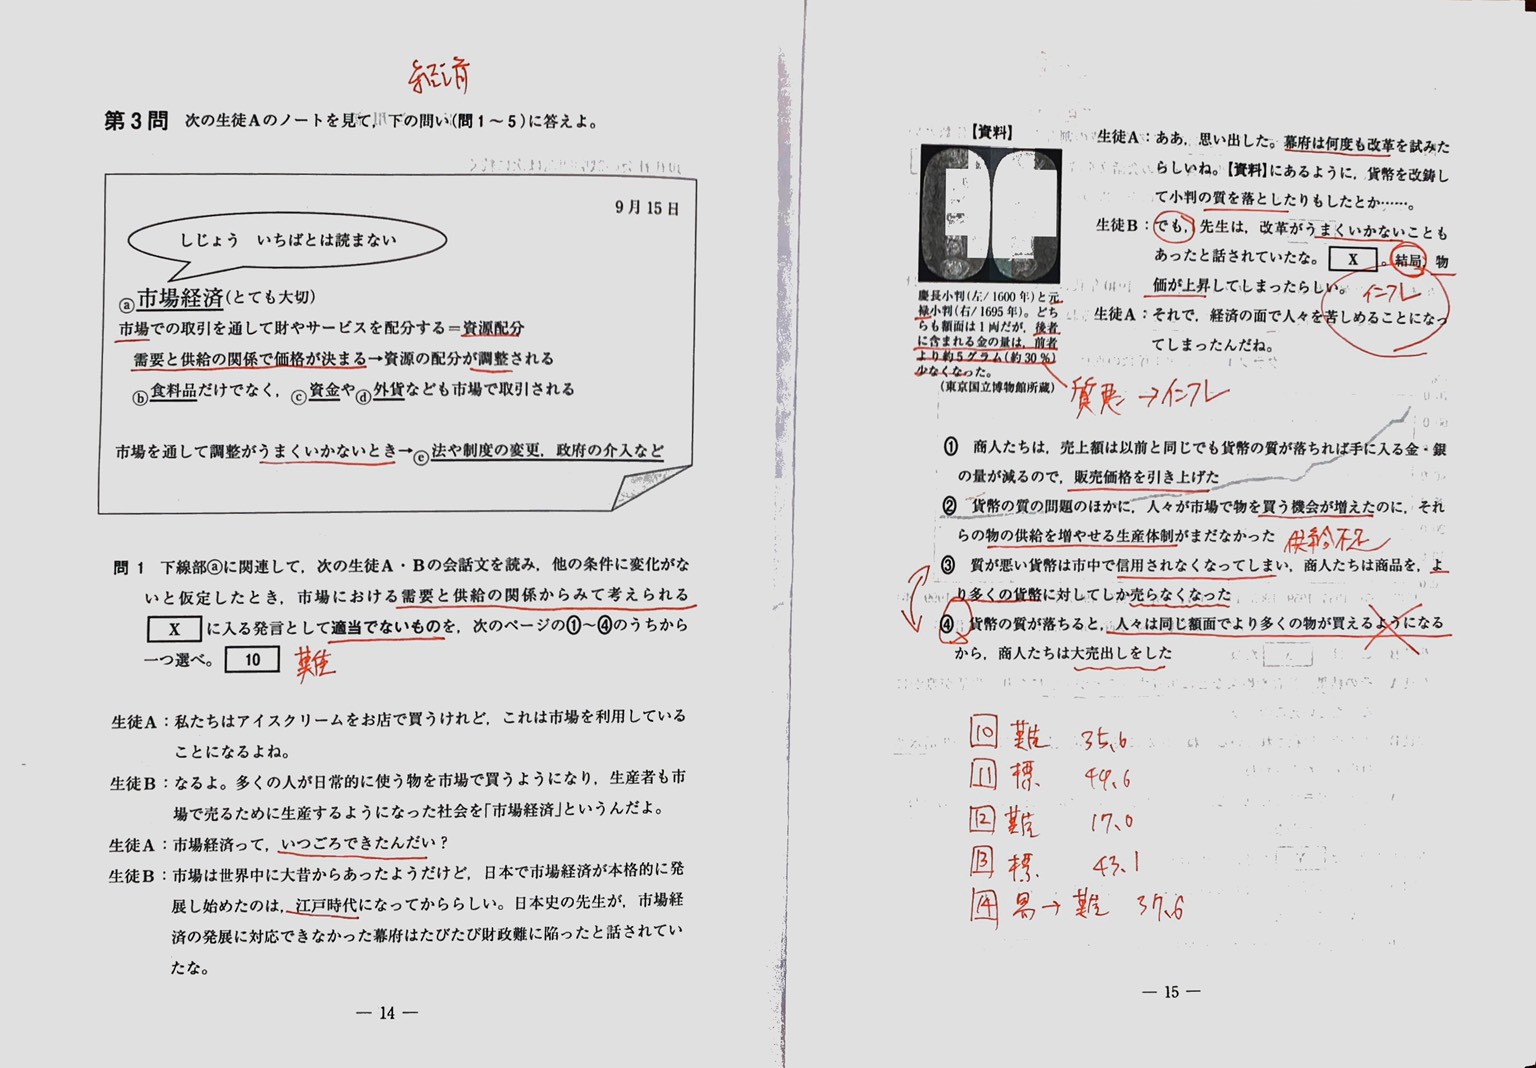 経済
第3問 次の生徒Aのノートを見て,下の問い(問1～5)に答えよ。
9月15日
しじょう いちばとは読まない
ⓐ市場経済(とても大切)
市場での取引を通して財やサービスを配分する＝資源配分
需要と供給の関係で価格が決まる→資源の配分が調整される
ⓑ食料品だけでなく,ⓒ資金やⓓ外貨なども市場で取引される
市場を通して調整がうまくいかないとき→ⓔ法や制度の変更,政府の介入など
問1 下線部ⓐに関連して,次の生徒A・Bの会話文を読み,他の条件に変化がな
いと仮定したとき,市場における需要と供給の関係からみて考えられる
X に入る発言として適当でないものを,次のページの①～④のうちから
一つ選べ。 10 難
生徒A：私たちはアイスクリームをお店で買うけれど,これは市場を利用している
ことになるよね。
生徒B：なるよ。多くの人が日常的に使う物を市場で買うようになり,生産者も市
場で売るために生産するようになった社会を「市場経済」というんだよ。
生徒A：市場経済って,いつごろできたんだい？
生徒B：市場は世界中に大昔からあったようだけど,日本で市場経済が本格的に発
展し始めたのは,江戸時代になってかららしい。日本史の先生が,市場経
済の発展に対応できなかった幕府はたびたび財政難に陥ったと話されてい
たな。
― 14 ―
【資料】
慶長小判(左/1600年)と元
禄小判(右/1695年)。どち
らも額面は1両だが,後者
に含まれる金の量は,前者
より約5グラム(約30％)
少なくなった。
(東京国立博物館所蔵)
生徒A：ああ,思い出した。幕府は何度も改革を試みた
らしいね。【資料】にあるように,貨幣を改鋳し
て小判の質を落としたりもしたとか……。
生徒B：でも,先生は,改革がうまくいかないことも
あったと話されていたな。 X 。結局,物
価が上昇してしまったらしい。 インフレ
生徒A：それで,経済の面で人々を苦しめることになっ
てしまったんだね。
質悪→インフレ
① 商人たちは,売上額は以前と同じでも貨幣の質が落ちれば手に入る金・銀
の量が減るので,販売価格を引き上げた
② 貨幣の質の問題のほかに,人々が市場で物を買う機会が増えたのに,それ
らの物の供給を増やせる生産体制がまだなかった 供給不足
③ 質が悪い貨幣は市中で信用されなくなってしまい,商人たちは商品を,よ
り多くの貨幣に対してしか売らなくなった
④ 貨幣の質が落ちると,人々は同じ額面でより多くの物が買えるようになる
から,商人たちは大売出しをした
10 難 35.6
11 標 49.6
12 難 17.0
13 標 43.1
14 易→難 37.6
― 15 ―